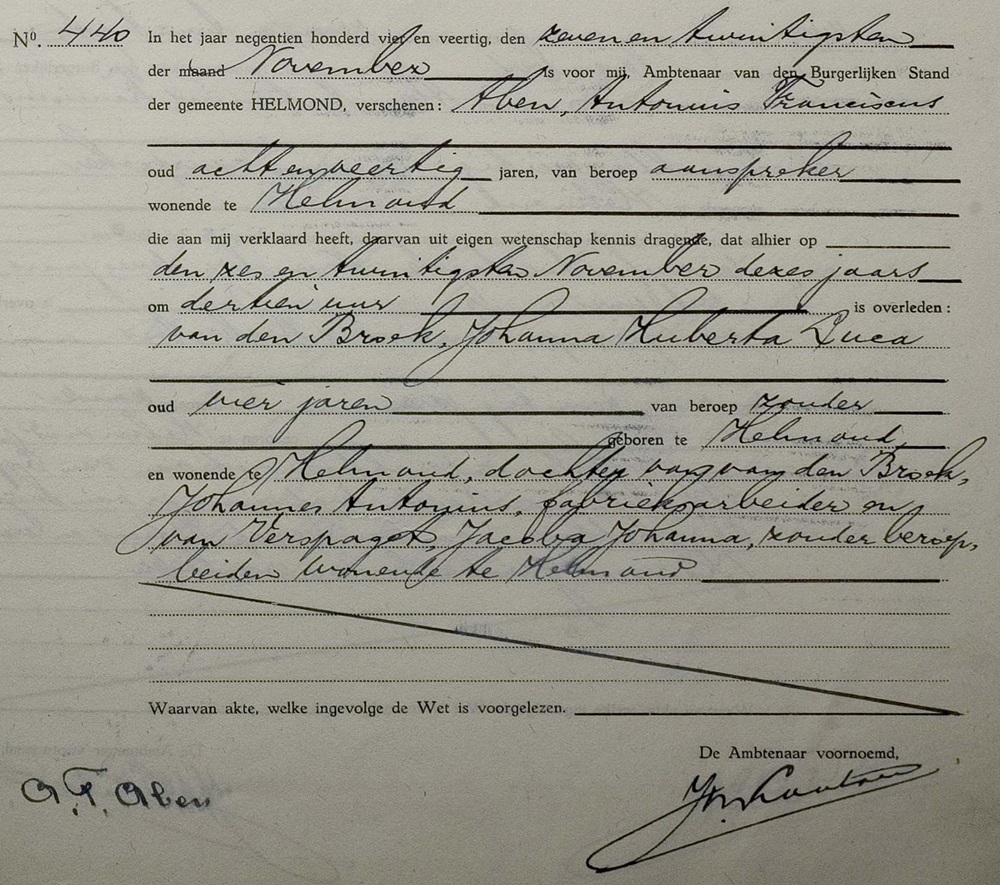 Nº. 440 In het jaar negentien honderd vier en veertig, den zeven en twintigsten
der maand November is voor mij, Ambtenaar van den Burgerlijken Stand
der gemeente HELMOND, verschenen: Aben, Antonius Franciscus
oud achtenveertig jaren, van beroep aanspreker
wonende te Helmond
die aan mij verklaard heeft, daarvan uit eigen wetenschap kennis dragende, dat alhier op
den zes en twintigsten November dezes jaars
om dertien uur is overleden:
van den Broek, Johanna Huberta Luca
oud vier jaren van beroep zonder
geboren te Helmond,
en wonende te Helmond, dochter van van den Broek,
Johannes Antonius, fabrieksarbeider en
van Verspaget, Jacoba Johanna, zonder beroep,
beiden wonende te Helmond
Waarvan akte, welke ingevolge de Wet is voorgelezen.
De Ambtenaar voornoemd,
A.F. Aben